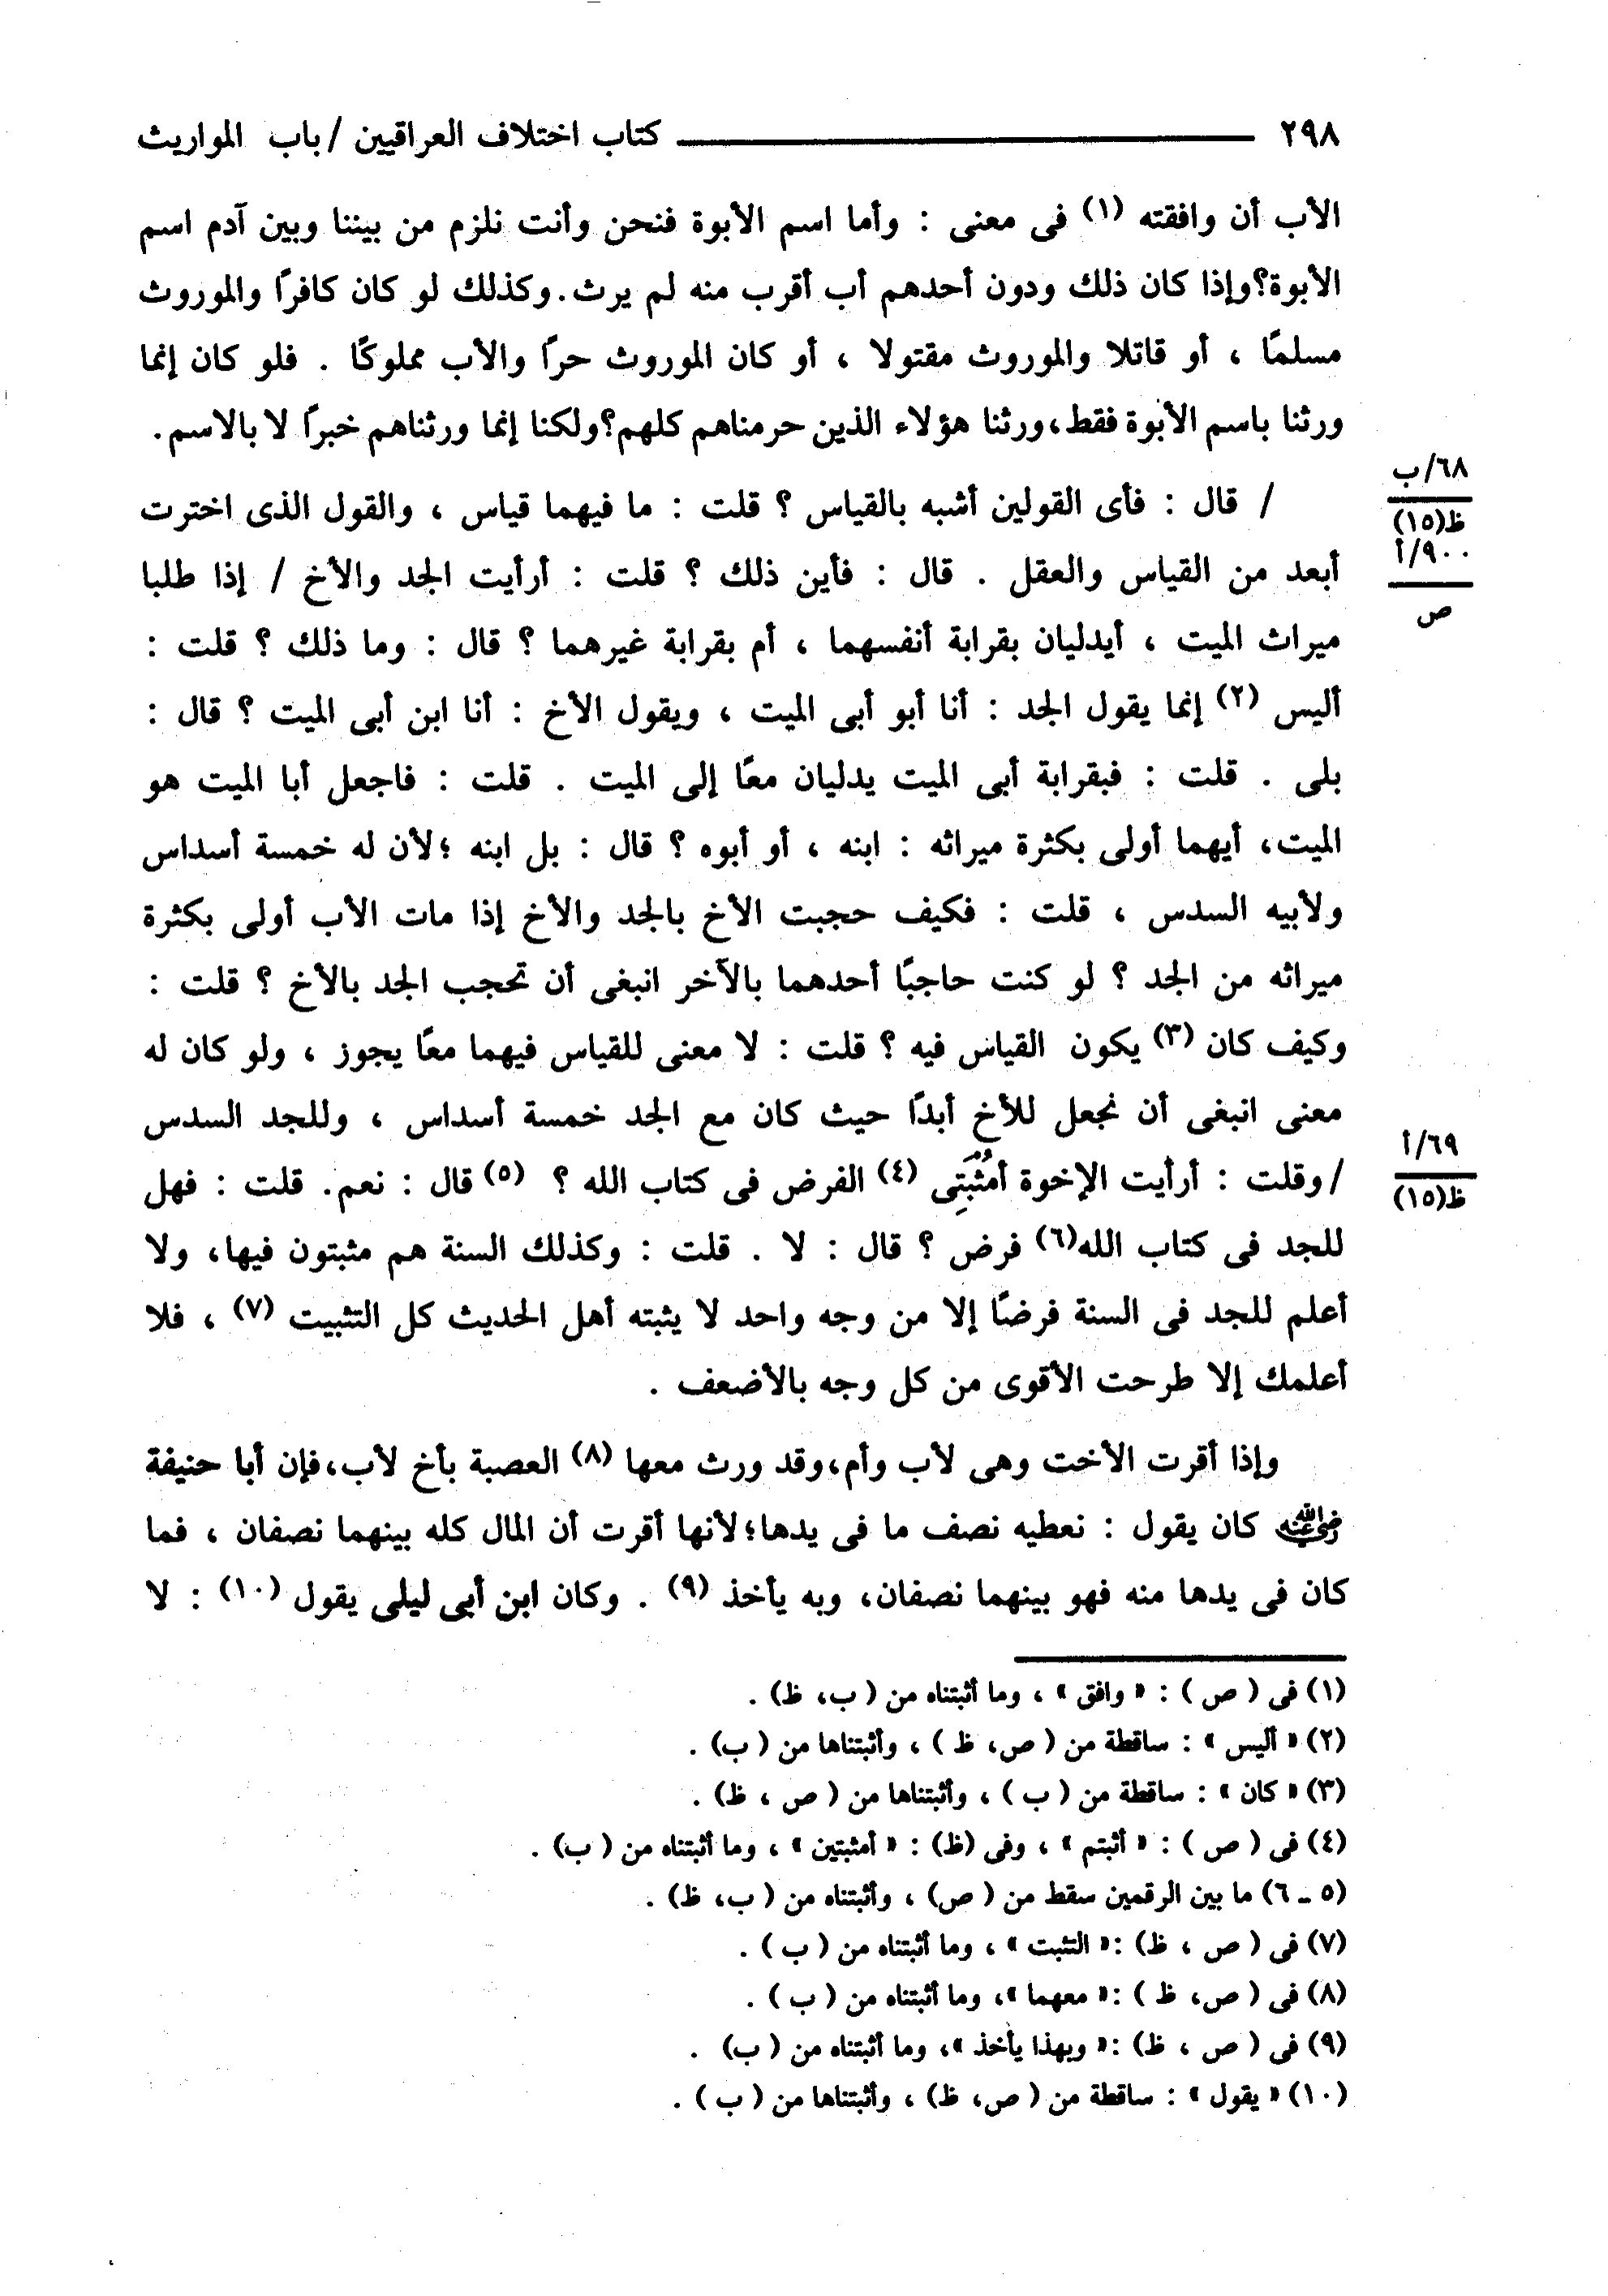 ٢٩٨ كتاب اختلاف العراقيين / باب المواريث
الأب أن وافقته (١) فى معنى : وأما اسم الأبوة فنحن وأنت نلزم من بيننا وبين آدم اسم
الأبوة؟وإذا كان ذلك ودون أحدهم أب أقرب منه لم يرث.وكذلك لو كان كافرًا والموروث
مسلمًا ، أو قاتلا والموروث مقتولا ، أو كان الموروث حرًا والأب مملوكًا . فلو كان إنما
ورثنا باسم الأبوة فقط،ورثنا هؤلاء الذين حرمناهم كلهم؟ولكنا إنما ورثناهم خبرًا لا بالاسم.
٦٨/ب
ظ(١٥)
/ قال : فأى القولين أشبه بالقياس ؟ قلت : ما فيهما قياس ، والقول الذى اخترت
٩٠٠/أ
ص
أبعد من القياس والعقل . قال : فأين ذلك ؟ قلت : أرأيت الجد والأخ / إذا طلبا
ميراث الميت ، أيدليان بقرابة أنفسهما ، أم بقرابة غيرهما ؟ قال : وما ذلك ؟ قلت :
أليس (٢) إنما يقول الجد : أنا أبو أبى الميت ، ويقول الأخ : أنا ابن أبى الميت ؟ قال :
بلى . قلت : فبقرابة أبى الميت يدليان معًا إلى الميت . قلت : فاجعل أبا الميت هو
الميت، أيهما أولى بكثرة ميراثه : ابنه ، أو أبوه ؟ قال : بل ابنه ؛لأن له خمسة أسداس
ولأبيه السدس ، قلت : فكيف حجبت الأخ بالجد والأخ إذا مات الأب أولى بكثرة
ميراثه من الجد ؟ لو كنت حاجبًا أحدهما بالآخر انبغى أن تحجب الجد بالأخ ؟ قلت :
وكيف كان (٣) يكون القياس فيه ؟ قلت : لا معنى للقياس فيهما معًا يجوز ، ولو كان له
معنى انبغى أن نجعل للأخ أبدًا حيث كان مع الجد خمسة أسداس ، وللجد السدس
٦٩/أ
ظ(١٥)
/ وقلت : أرأيت الإخوة أمُثْبَتِى (٤) الفرض فى كتاب الله ؟ (٥) قال : نعم. قلت : فهل
للجد فى كتاب الله(٦) فرض ؟ قال : لا . قلت : وكذلك السنة هم مثبتون فيها، ولا
أعلم للجد فى السنة فرضًا إلا من وجه واحد لا يثبته أهل الحديث كل التثبيت (٧) ، فلا
أعلمك إلا طرحت الأقوى من كل وجه بالأضعف .
وإذا أقرت الأخت وهى لأب وأم،وقد ورث معها (٨) العصبة بأخ لأب،فإن أبا حنيفة
رضي الله عنه كان يقول : نعطيه نصف ما فى يدها؛لأنها أقرت أن المال كله بينهما نصفان ، فما
كان فى يدها منه فهو بينهما نصفان، وبه يأخذ (٩) . وكان ابن أبى ليلى يقول (١٠) : لا
(١) فى ( ص ) : « وافق » ، وما أثبتناه من ( ب، ظ) .
(٢) « أليس » : ساقطة من ( ص، ظ ) ، وأثبتناها من ( ب) .
(٣) « كان » : ساقطة من ( ب ) ، وأثبتناها من ( ص ، ظ) .
(٤) فى ( ص ) : « أثبتم » ، وفى (ظ) : « أمثبتين » ، وما أثبتناه من ( ب) .
(٥ ـ ٦) ما بين الرقمين سقط من ( ص) ، وأثبتناه من ( ب، ظ) .
(٧) فى ( ص ، ظ) :« التثبت » ، وما أثبتناه من ( ب ) .
(٨) فى ( ص، ظ ) :« معهما »، وما أثبتناه من ( ب ) .
(٩) فى ( ص ، ظ) :« وبهذا يأخذ »، وما أثبتناه من ( ب) .
(١٠) « يقول » : ساقطة من ( ص، ظ) ، وأثبتناها من ( ب ) .